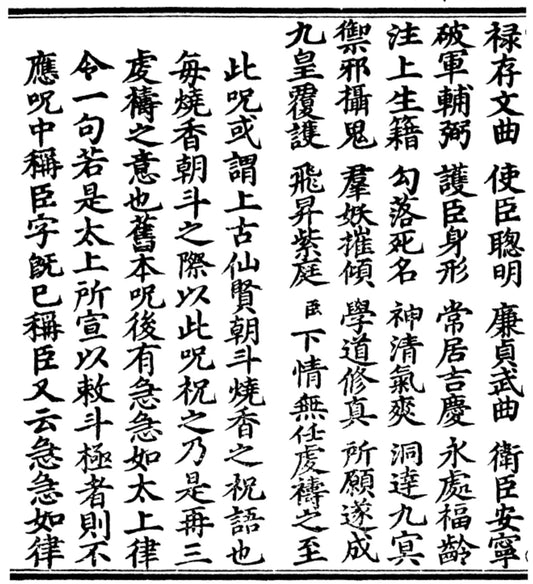 禄存文曲 使臣聰明 廉貞武曲 衛臣安寧
破軍輔弼 護臣身形 常居吉慶 永處福齡
注上生籍 勾落死名 神清氣爽 洞達九㝠
禦邪攝鬼 羣妖摧傾 學道修真 所願遂成
九皇覆護 飛昇紫庭 臣下情無任虔禱之至
此呪或謂上古仙賢朝斗燒香之祝語也
每燒香朝斗之際以此呪祝之乃是再三
虔禱之意也舊本呪後有急急如太上律
令一句若是太上所宣以敕斗極者則不
應呪中稱臣字旣巳稱臣又云急急如律